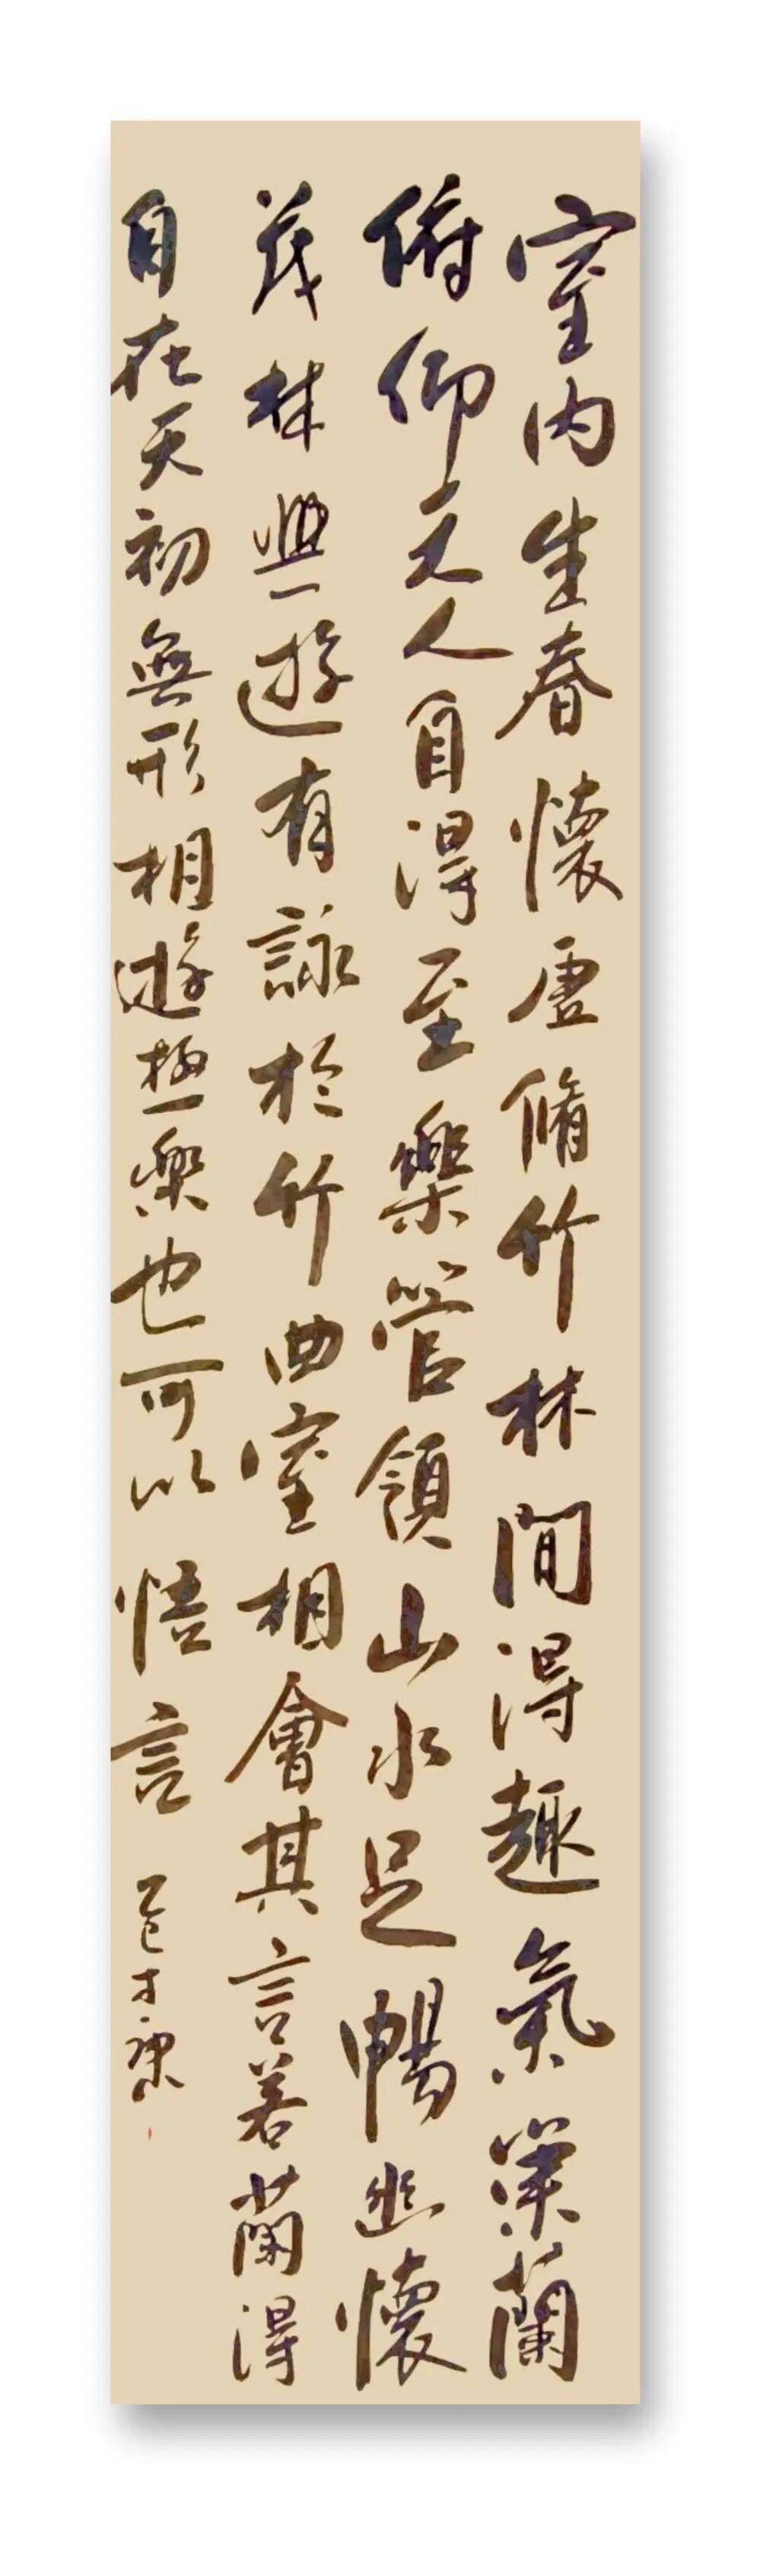 室内生春懷虛脩竹林間得趣氣業蘭
俯仰天人自得至樂管領山水足暢幽懷
茂林與遊有詠於竹曲室相會其言若蘭得
自在天初無形相遊極樂也可以悟言
乙巳才康